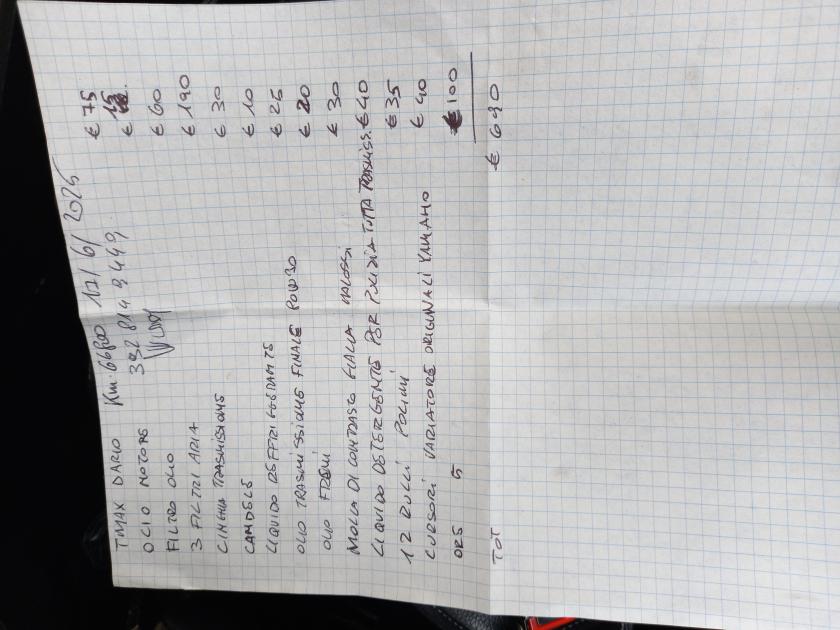 TMAX DARIO Km: 66800 17/6/2025
392 814 9449
OLIO MOTORE € 75
FILTRO OLIO € 15
3 FILTRI ARIA € 60
CINGHIA TRASMISSIONE € 190
CANDELE € 30
LIQUIDO REFFRIGGERANTE € 10
OLIO TRASMISSIONE FINALE € 25
OLIO FRENI € 20
MOLLA DI CONTRASTO GIALLA MALOSSI € 30
LIQUIDO DETERGENTE PER PULIZIA TUTTA TRASMISS. € 40
12 RULLI POLINI € 35
CURSORI VARIATORE ORIGINALI YAMAHA € 40
ORE 5 € 100
TOT € 690